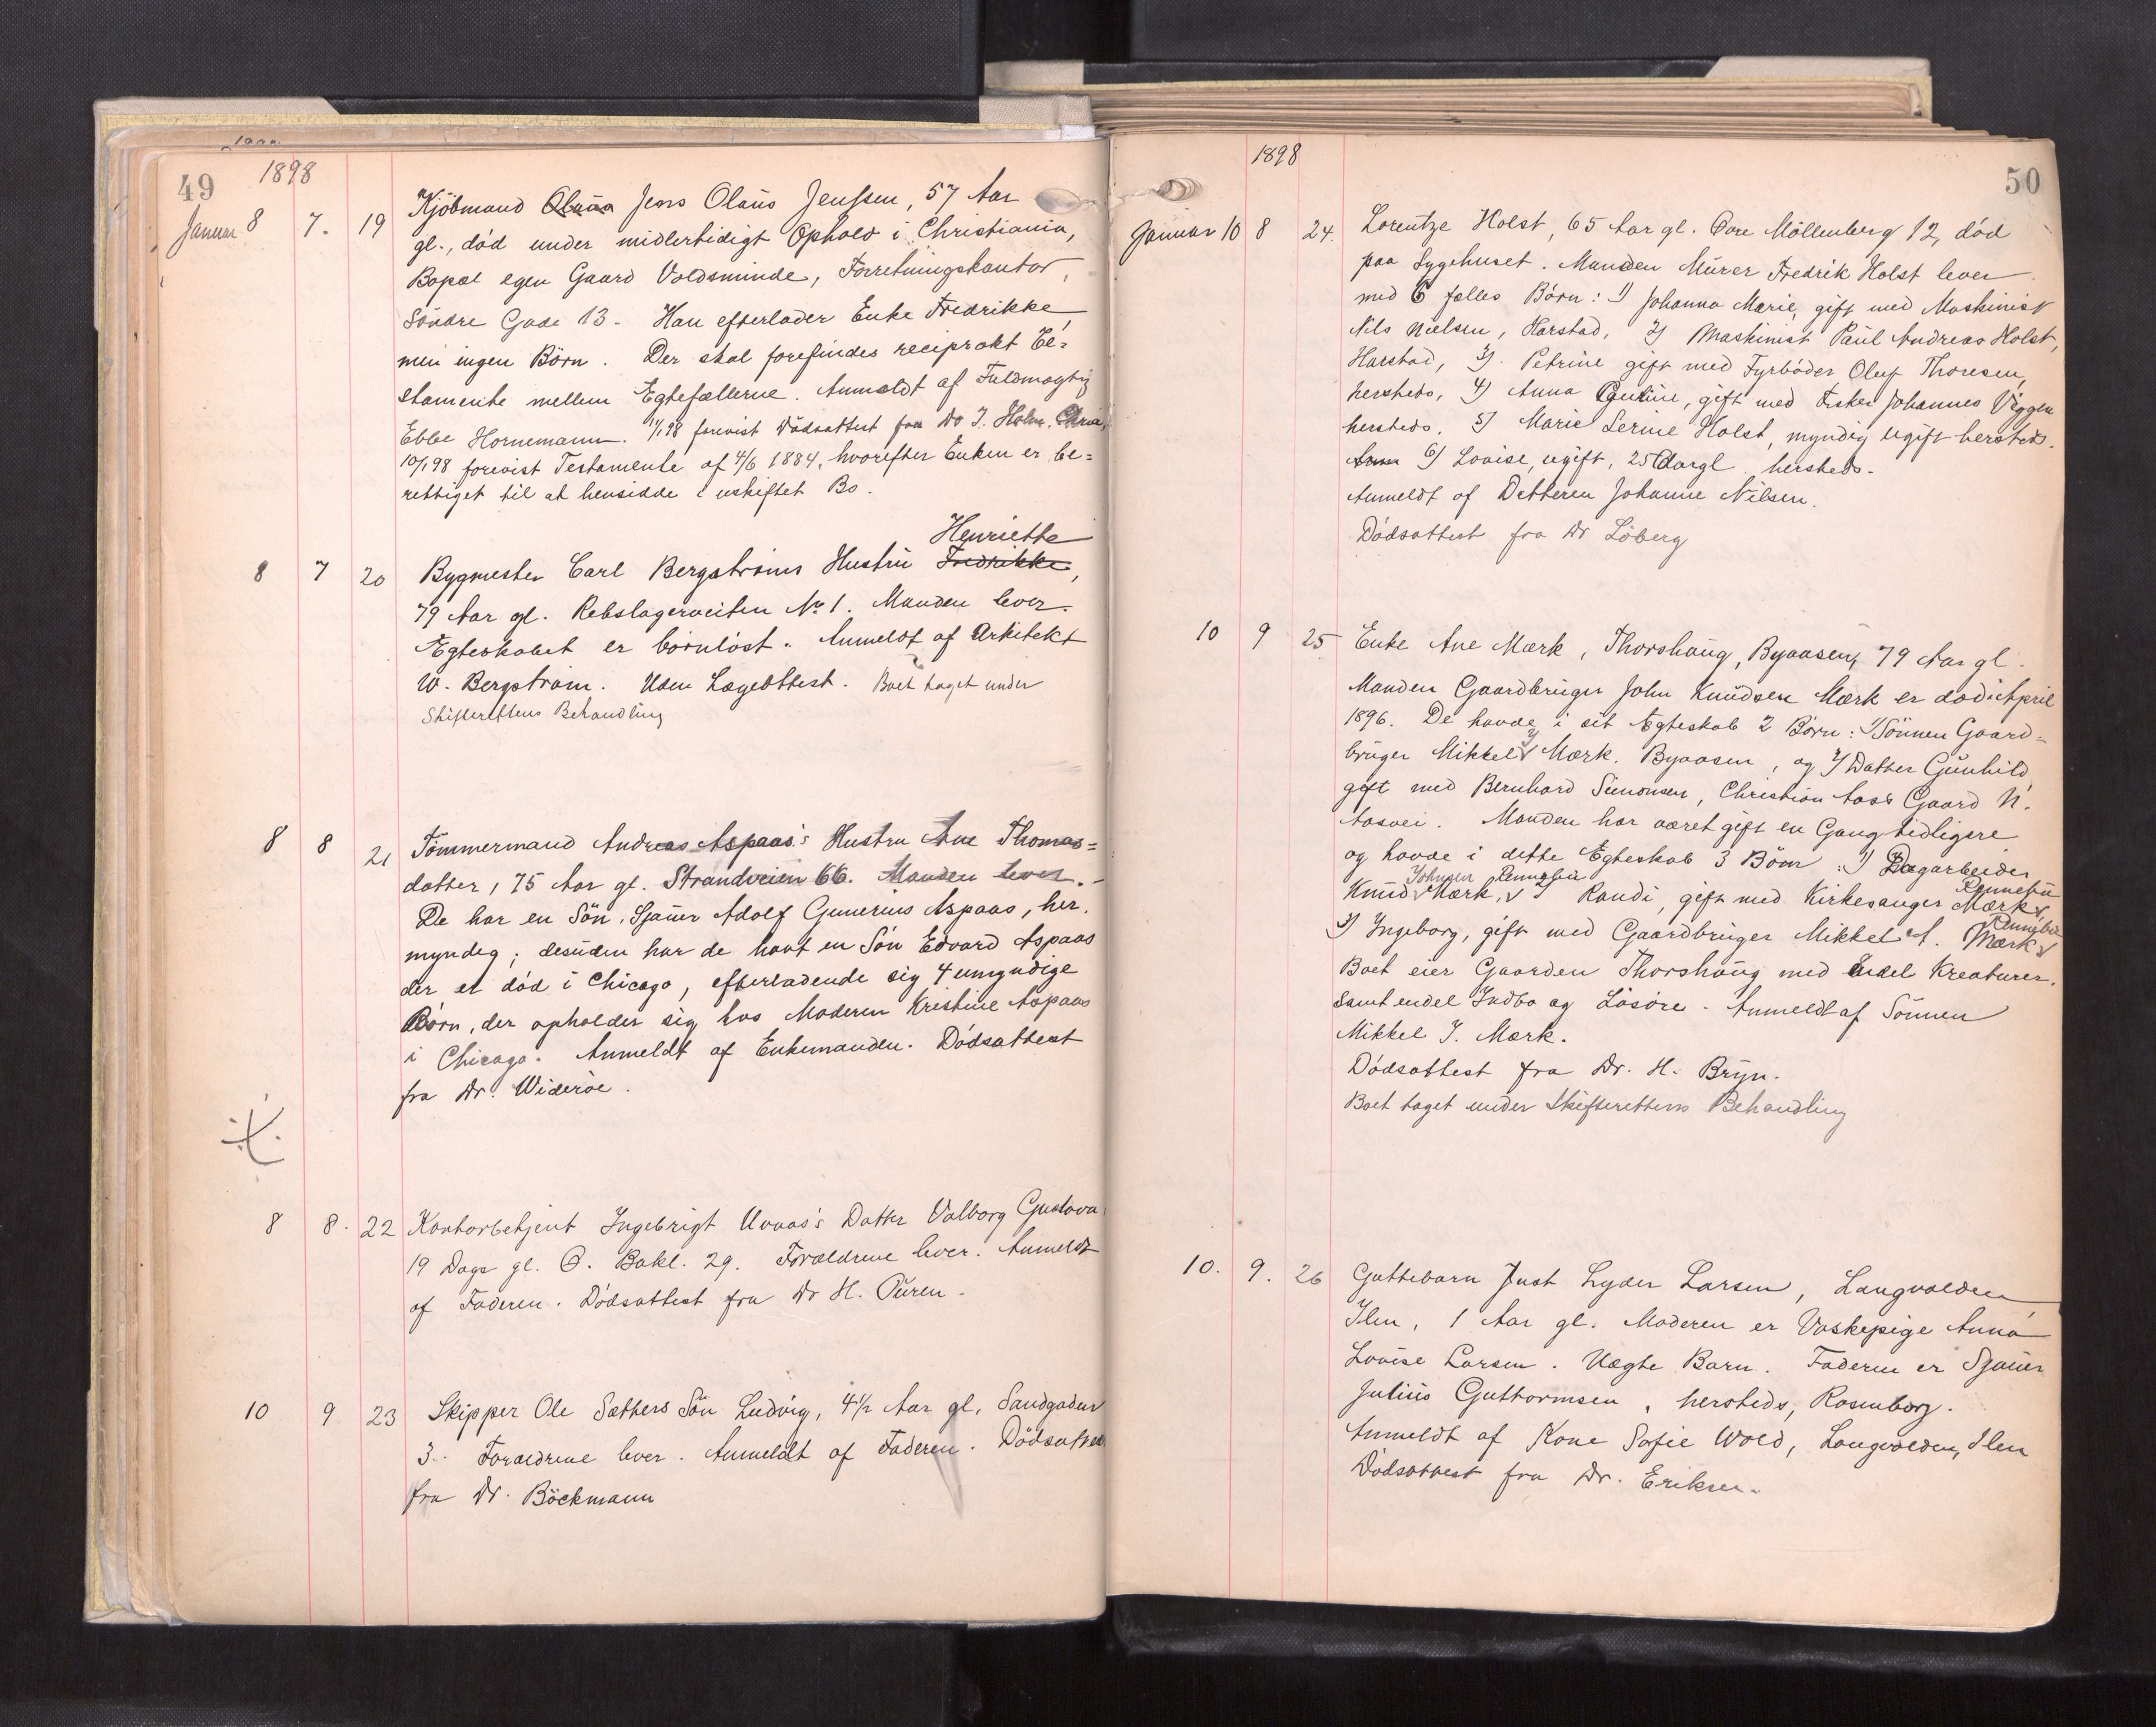 49
1898
Januar 8 7. 19 Kjöbmand Olaus Jens Olaus Jenssen, 57 Aar
gl., död under midlertidigt Ophold i Christiania,
Bopæl egen Gaard Voldsminde, Forretningskontor,
Söndre Gade 13. Han efterlader Enke Fredrikke,
men ingen Börn. Der skal forefindes reciprokt Te=
stamente mellem Ægtefællerne. Anmeldt af Fuldmægtig
Ebbe Hornemann. 11/1 98 forevist Dödsattest fra Dr J. Holm. Chria,
10/1 98 forevist Testamente af 4/6 1884, hvorefter Enken er be=
rettiget til at hensidde i uskiftet Bo.
Henriette
8 7 20 Bygmester Carl Bergstrøms Hustru Fredrikke,
79 Aar gl. Rebslagerveiten No 1. Manden lever.
Ægteskabet er børnløst. Anmeldt af Arkitekt
W. Bergstrøm. Uden Lægeattest. Boet taget under
Skifterettens Behandling
8 8 21 Tömmermand Andreas Aspaas's Hustru Ane Thomas=
datter, 75 Aar gl. Strandveien 66. Manden lever.
De har en Sön, Sjauer Adolf Gunerius Aspaas, her.
myndig; desuden har de havt en Sön Edvard Aspaas
der er död i Chicago, efterladende sig 4 umyndige
Börn, der opholder sig hos Moderen Kristine Aspaas
i Chicago. Anmeldt af Enkemanden. Dödsattest
fra Dr. Wideröe.
8 8. 22 Kontorbetjent Ingebrigt Uvaas's Datter Valborg Gustava
19 Dage gl. Ø. Bakl. 29. Forældrene lever. Anmeldt
af Faderen. Dödsattest fra Dr H. Öuren.
10 9 23 Skipper Ole Sæthers Sön Ludvig, 4 1/2 Aar gl, Sandgaden
3. Forældrene lever. Anmeldt af Faderen. Dödsattest
fra Dr. Böckmann
1898
50
Januar 10 8 24. Lorentze Holst, 65 Aar gl. Övre Möllenberg 12, död
paa Sygehuset. Manden Murer Fredrik Holst lever
med 6 fælles Börn: 1) Johanna Marie, gift med Maskinist
Nils Nielsen, Harstad, 2) Maskinist Paul Andreas Holst,
Harstad, 3) Petrine gift med Fyrböder Oluf Thoresen,
hersteds, 4) Anna Gurine, gift med Fisker Johannes Viggen
hersteds. 5) Marie Serine Holst, myndig ugift hersteds.
6) Lovise, ugift, 25 Aar gl hersteds.
Anmeldt af Datteren Johanne Nilsen.
Dödsattest fra Dr Löberg
10 9 25 Enke Ane Mærk, Thorshaug, Byaasen, 79 Aar gl.
Manden Gaardbruger John Knudsen Mærk er död i April
1896. De havde i sit Ægteskab 2 Börn: 1) Sönnen Gaard=
bruger Mikkel J Mærk. Byaasen, og 2) Datter Gunhild,
gift med Bernhard Simonsen, Christian Aas's Gaard N.
Aasvei. Manden har været gift en Gang tidligere
og havde i dette Ægteskab 3 Börn: 1) Dagarbeider
Johnsen Rennebu
Knud Mærk, 2) Randi, gift med Kirkesanger Mærk, Rennebu
3) Ingeborg, gift med Gaardbruger Mikkel A. Mærk Rennebu
Boet eier Gaarden Thorshaug med endel Kreaturer.
samt endel Indbo og Lösöre. Anmeldt af Sönnen
Mikkel J. Mærk.
Dödsattest fra Dr. H. Bryn.
Boet taget under Skifterettens Behandling
10. 9. 26 Guttebarn Just Lyder Larsen, Langvolden,
Ilen, 1 Aar gl. Moderen er Vaskepige Anna
Lovise Larsen. Uægte Barn. Faderen er Sjauer
Julius Guttormsen, hersteds, Rosenborg.
Anmeldt af Kone Sofie Wold, Langvolden, Ilen
Dödsattest fra Dr. Eriksen.